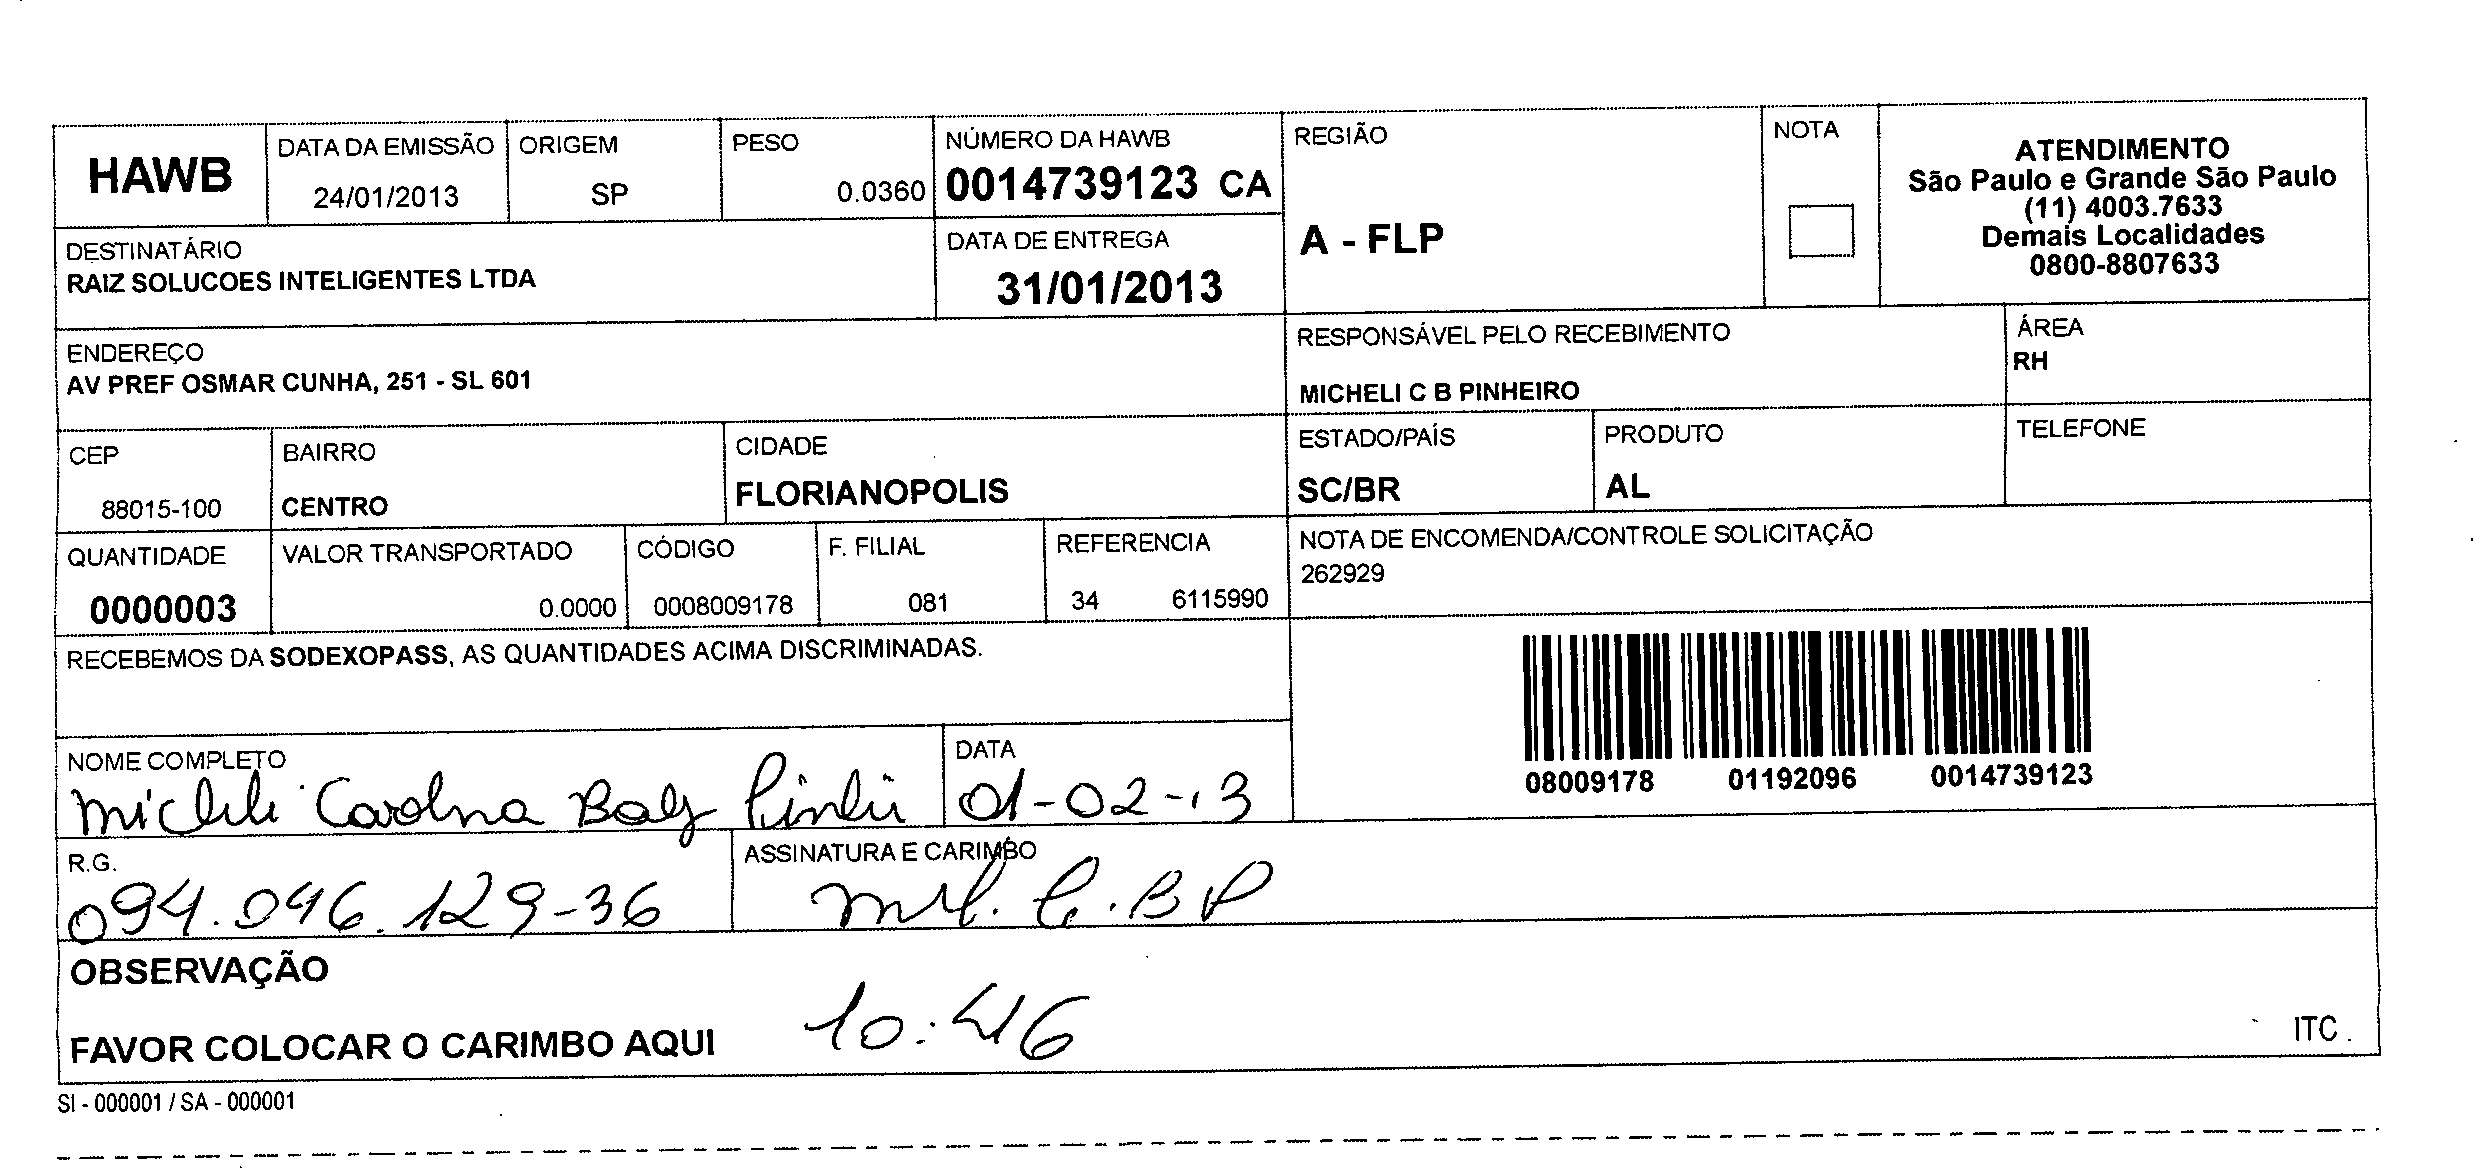 HAWB
DATA DA EMISSÃO
24/01/2013
ORIGEM
SP
PESO
0.0360
NÚMERO DA HAWB
0014739123 CA
REGIÃO
A - FLP
NOTA
ATENDIMENTO
São Paulo e Grande São Paulo
(11) 4003.7633
Demais Localidades
0800-8807633
DESTINATÁRIO
RAIZ SOLUCOES INTELIGENTES LTDA
DATA DE ENTREGA
31/01/2013
ENDEREÇO
AV PREF OSMAR CUNHA, 251 - SL 601
RESPONSÁVEL PELO RECEBIMENTO
MICHELI C B PINHEIRO
ÁREA
RH
CEP
88015-100
BAIRRO
CENTRO
CIDADE
FLORIANOPOLIS
ESTADO/PAÍS
SC/BR
PRODUTO
AL
TELEFONE
QUANTIDADE
0000003
VALOR TRANSPORTADO
0.0000
CÓDIGO
0008009178
F. FILIAL
081
REFERENCIA
34 6115990
NOTA DE ENCOMENDA/CONTROLE SOLICITAÇÃO
262929
RECEBEMOS DA SODEXOPASS, AS QUANTIDADES ACIMA DISCRIMINADAS.
08009178 01192096 0014739123
NOME COMPLETO
Micheli Carolina
DATA
01-02-13
R.G.
094.046.129-36
ASSINATURA E CARIMBO
C.BP
OBSERVAÇÃO
10:46
FAVOR COLOCAR O CARIMBO AQUI
ITC.
SI - 000001 / SA - 000001